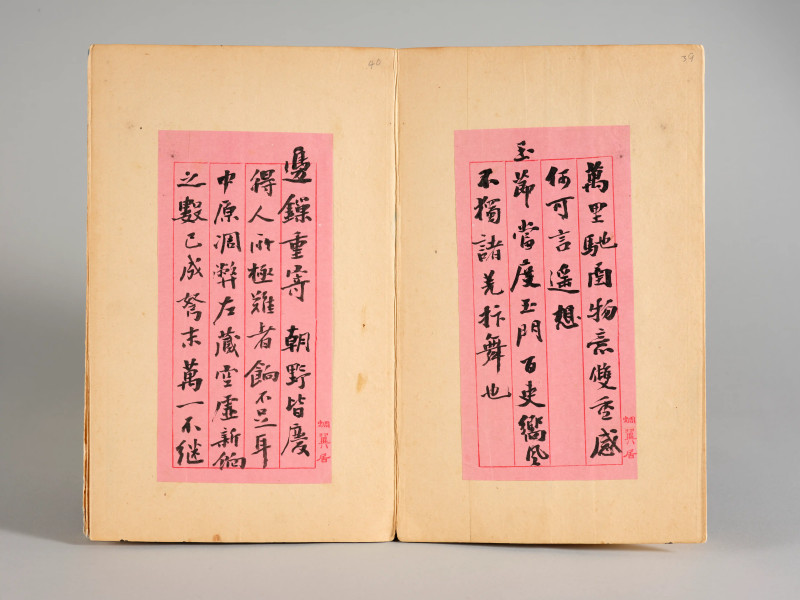 39
萬里馳函物意雙垂感
何可言遥想
玉節當度玉門百吏嚮風
不獨諸羌抃舞也
40
邊鏁重寄 朝野皆慶
得人所極難者餉不足耳
中原凋弊左藏空虛新餉
之數已成弩末萬一不继